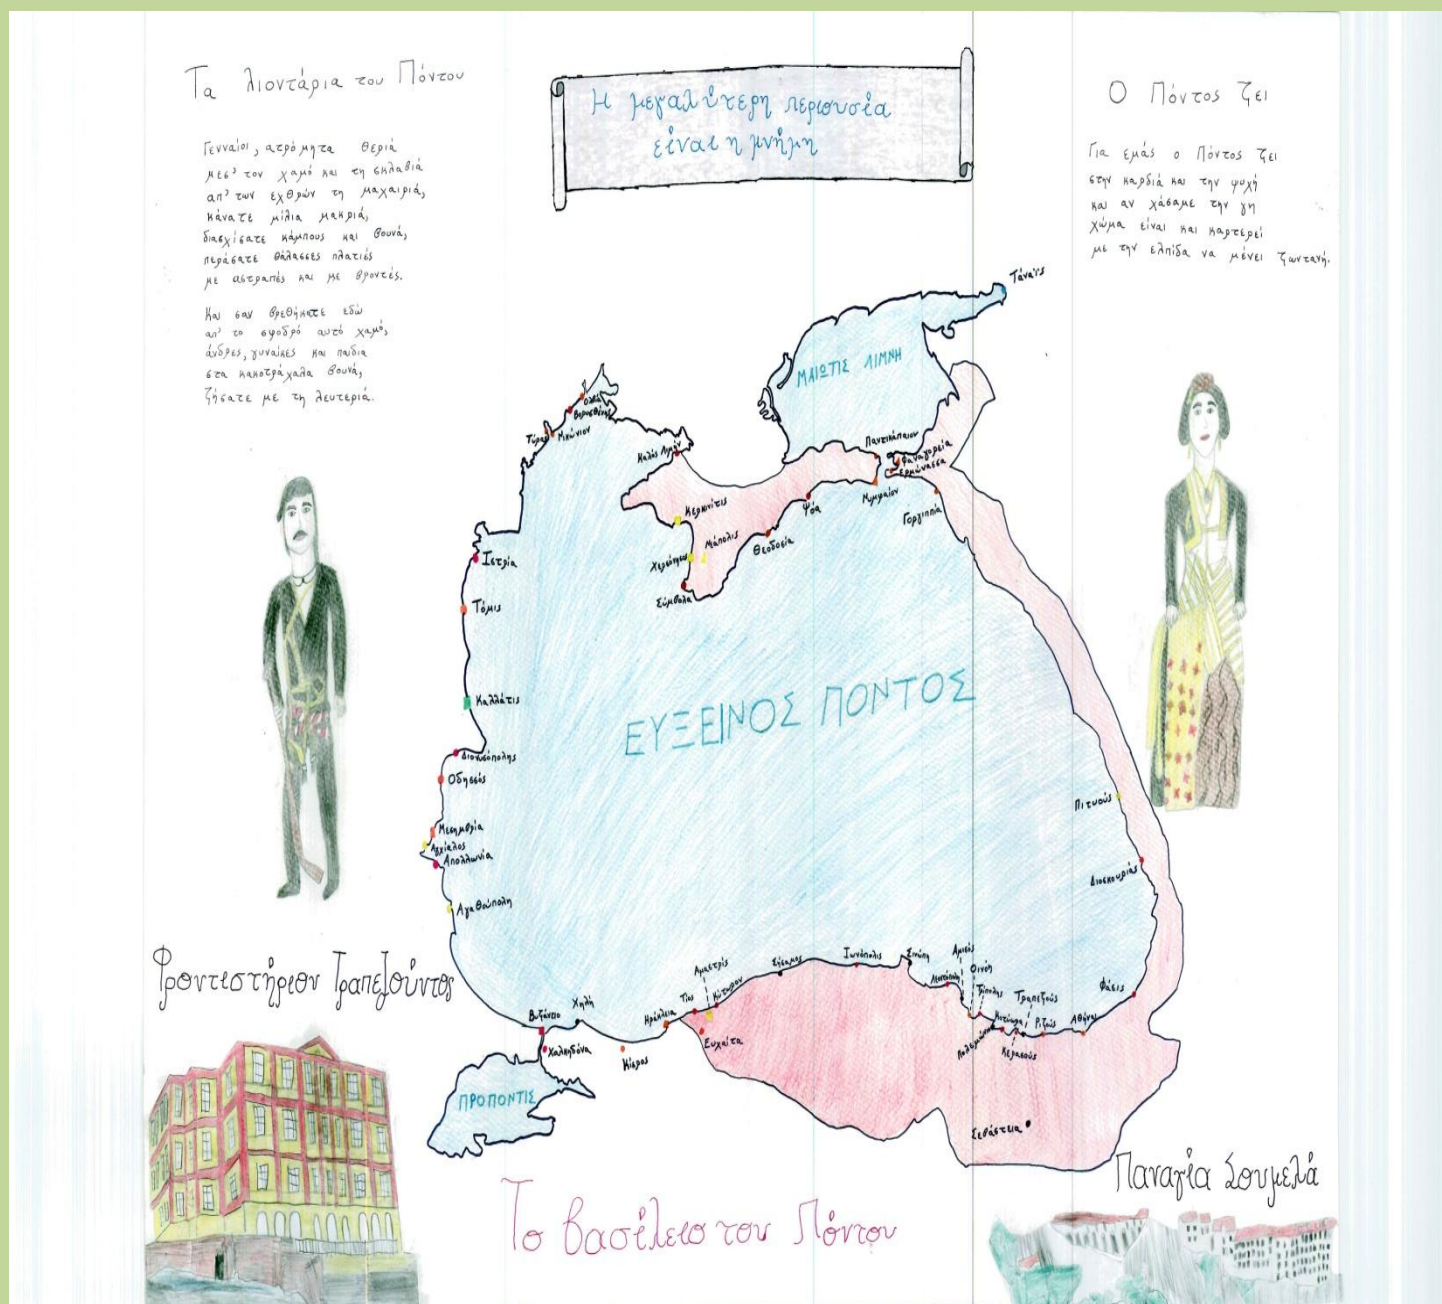 Τα λιοντάρια του Πόντου
Γενναίοι, ατρόμητα θεριά
μεσ' τον χαμό και τη σκλαβιά
απ' των εχθρών τη μαχαιριά,
κάνατε μίλια μακριά,
διασχίσατε κάμπους και βουνά,
περάσατε θάλασσες πλατιές
με αστραπές και με βροντές.
Και σαν βρεθήκατε εδώ
απ' το σφοδρό αυτό χαμό,
άνδρες, γυναίκες και παιδια
στα κακοτράχαλα βουνά,
ζήσατε με τη λευτεριά.
Η μεγαλύτερη περιουσία
είναι η μνήμη
Ο Πόντος ζει
Για εμάς ο Πόντος ζει
στην καρδιά και την ψυχή
και αν χάσαμε την γη
χώμα είναι και καρτερεί
με την ελπίδα να μένει ζωντανή.
Τάναϊς
ΜΑΙΩΤΙΣ ΛΙΜΝΗ
Ολβία
Βορυσθένης
Τύρας
Νικώνιον
Καλός Λιμήν
Παντικάπαιον
Φαναγορεία
Ερμώνασσα
Νυμφαίον
Γοργιππία
Κερκινίτις
Νεάπολις
Χερσόνησος
Σύμβολα
Θεοδοσία
Ιστρία
Τόμις
Καλλάτις
Διονυσόπολης
Οδησσός
Μεσημβρία
Αγχίαλος
Απολλωνία
Αγαθούπολη
ΕΥΞΕΙΝΟΣ ΠΟΝΤΟΣ
Πιτυούς
Διοσκουριάς
Φάσις
Αθήναι
Ριζούς
Τραπεζούς
Κερασούς
Κοτύωρα
Πολεμώνιο
Τρίπολης
Οινόη
Αμισός
Σινώπη
Ιωνόπολις
Σήσαμος
Κύτωρον
Αμαστρίς
Τίος
Ηράκλεια
Ευχαίτα
Κίερος
Χηλή
Βυζάντιο
Χαλκηδόνα
ΠΡΟΠΟΝΤΙΣ
Σεβάστεια
Φροντιστήριον Τραπεζούντος
Παναγία Σουμελά
Το βασίλειο του Πόντου